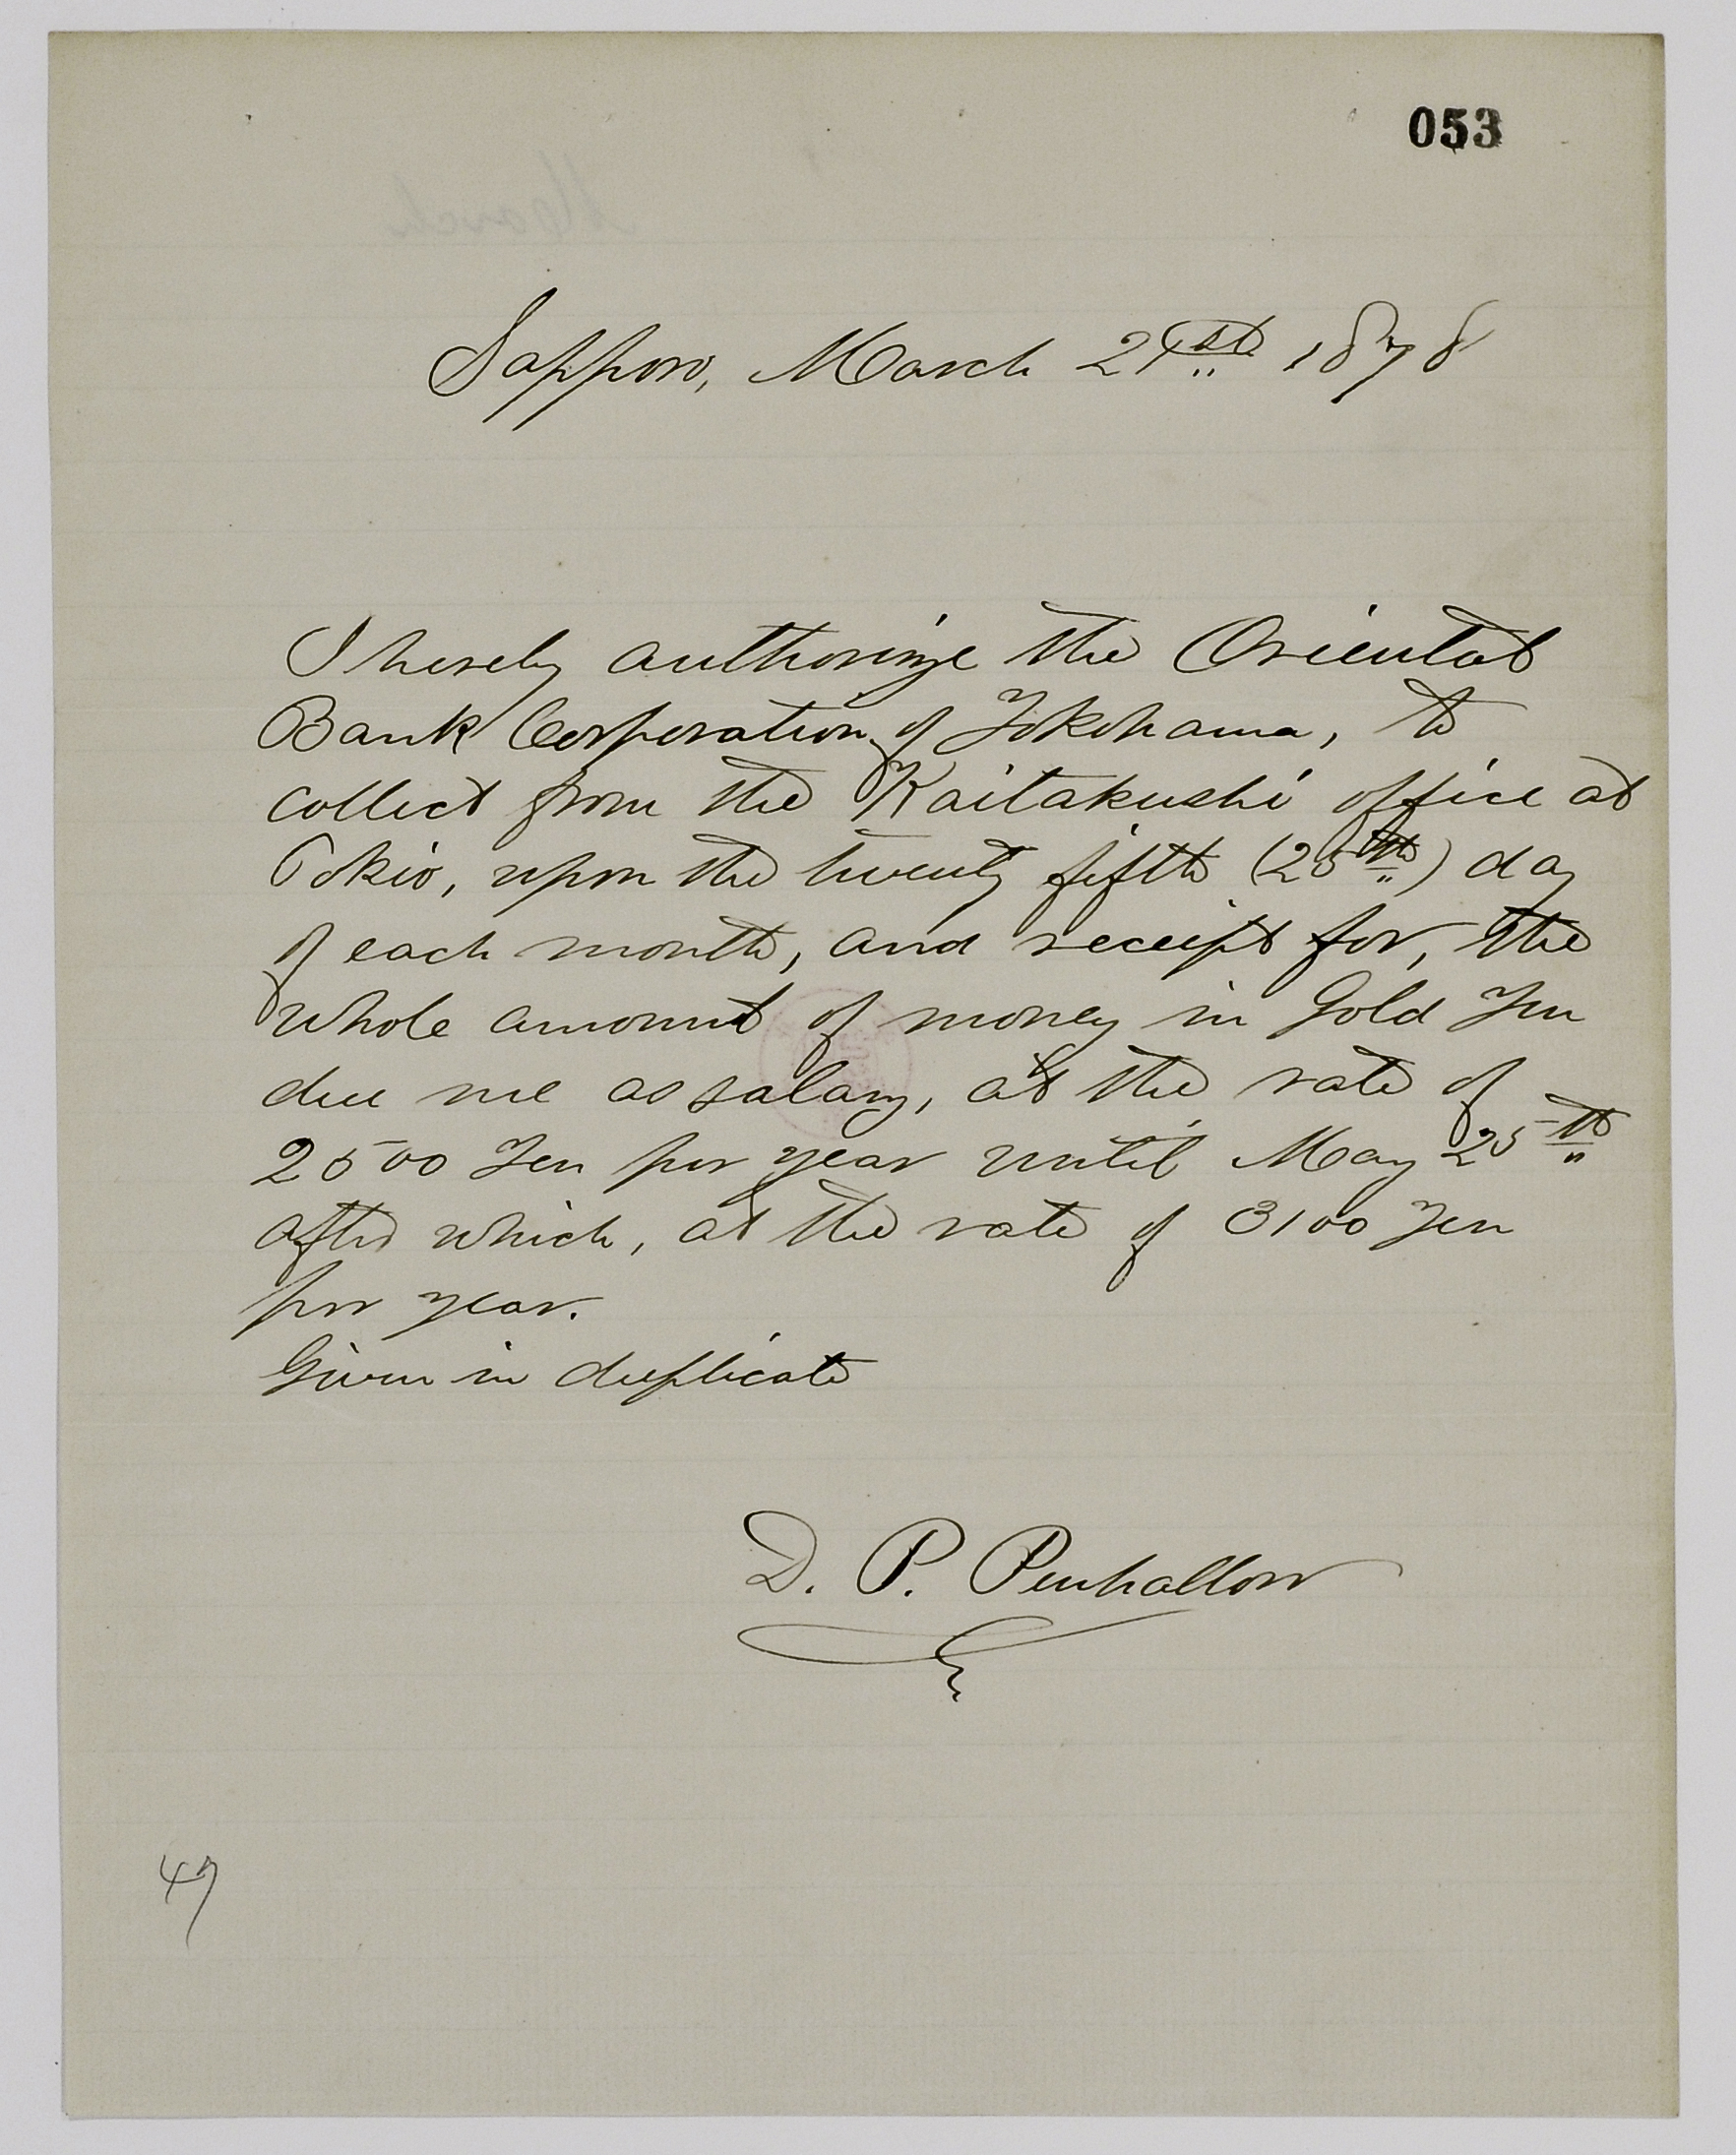 053
Sapporo, March 21st 1878
I hereby authorize the Oriental
Bank Corporation of Yokohama, to
collect from the Kaitakushi office at
Tokio, upon the twenty fifth (25th) day
of each month, and receipt for, the
whole amount of money in Gold Yen
due me as salary, at the rate of
2500 Yen per year until May 25th
after which, at the rate of 3100 Yen
per year.
Given in duplicate
D. P. Penhallow
47